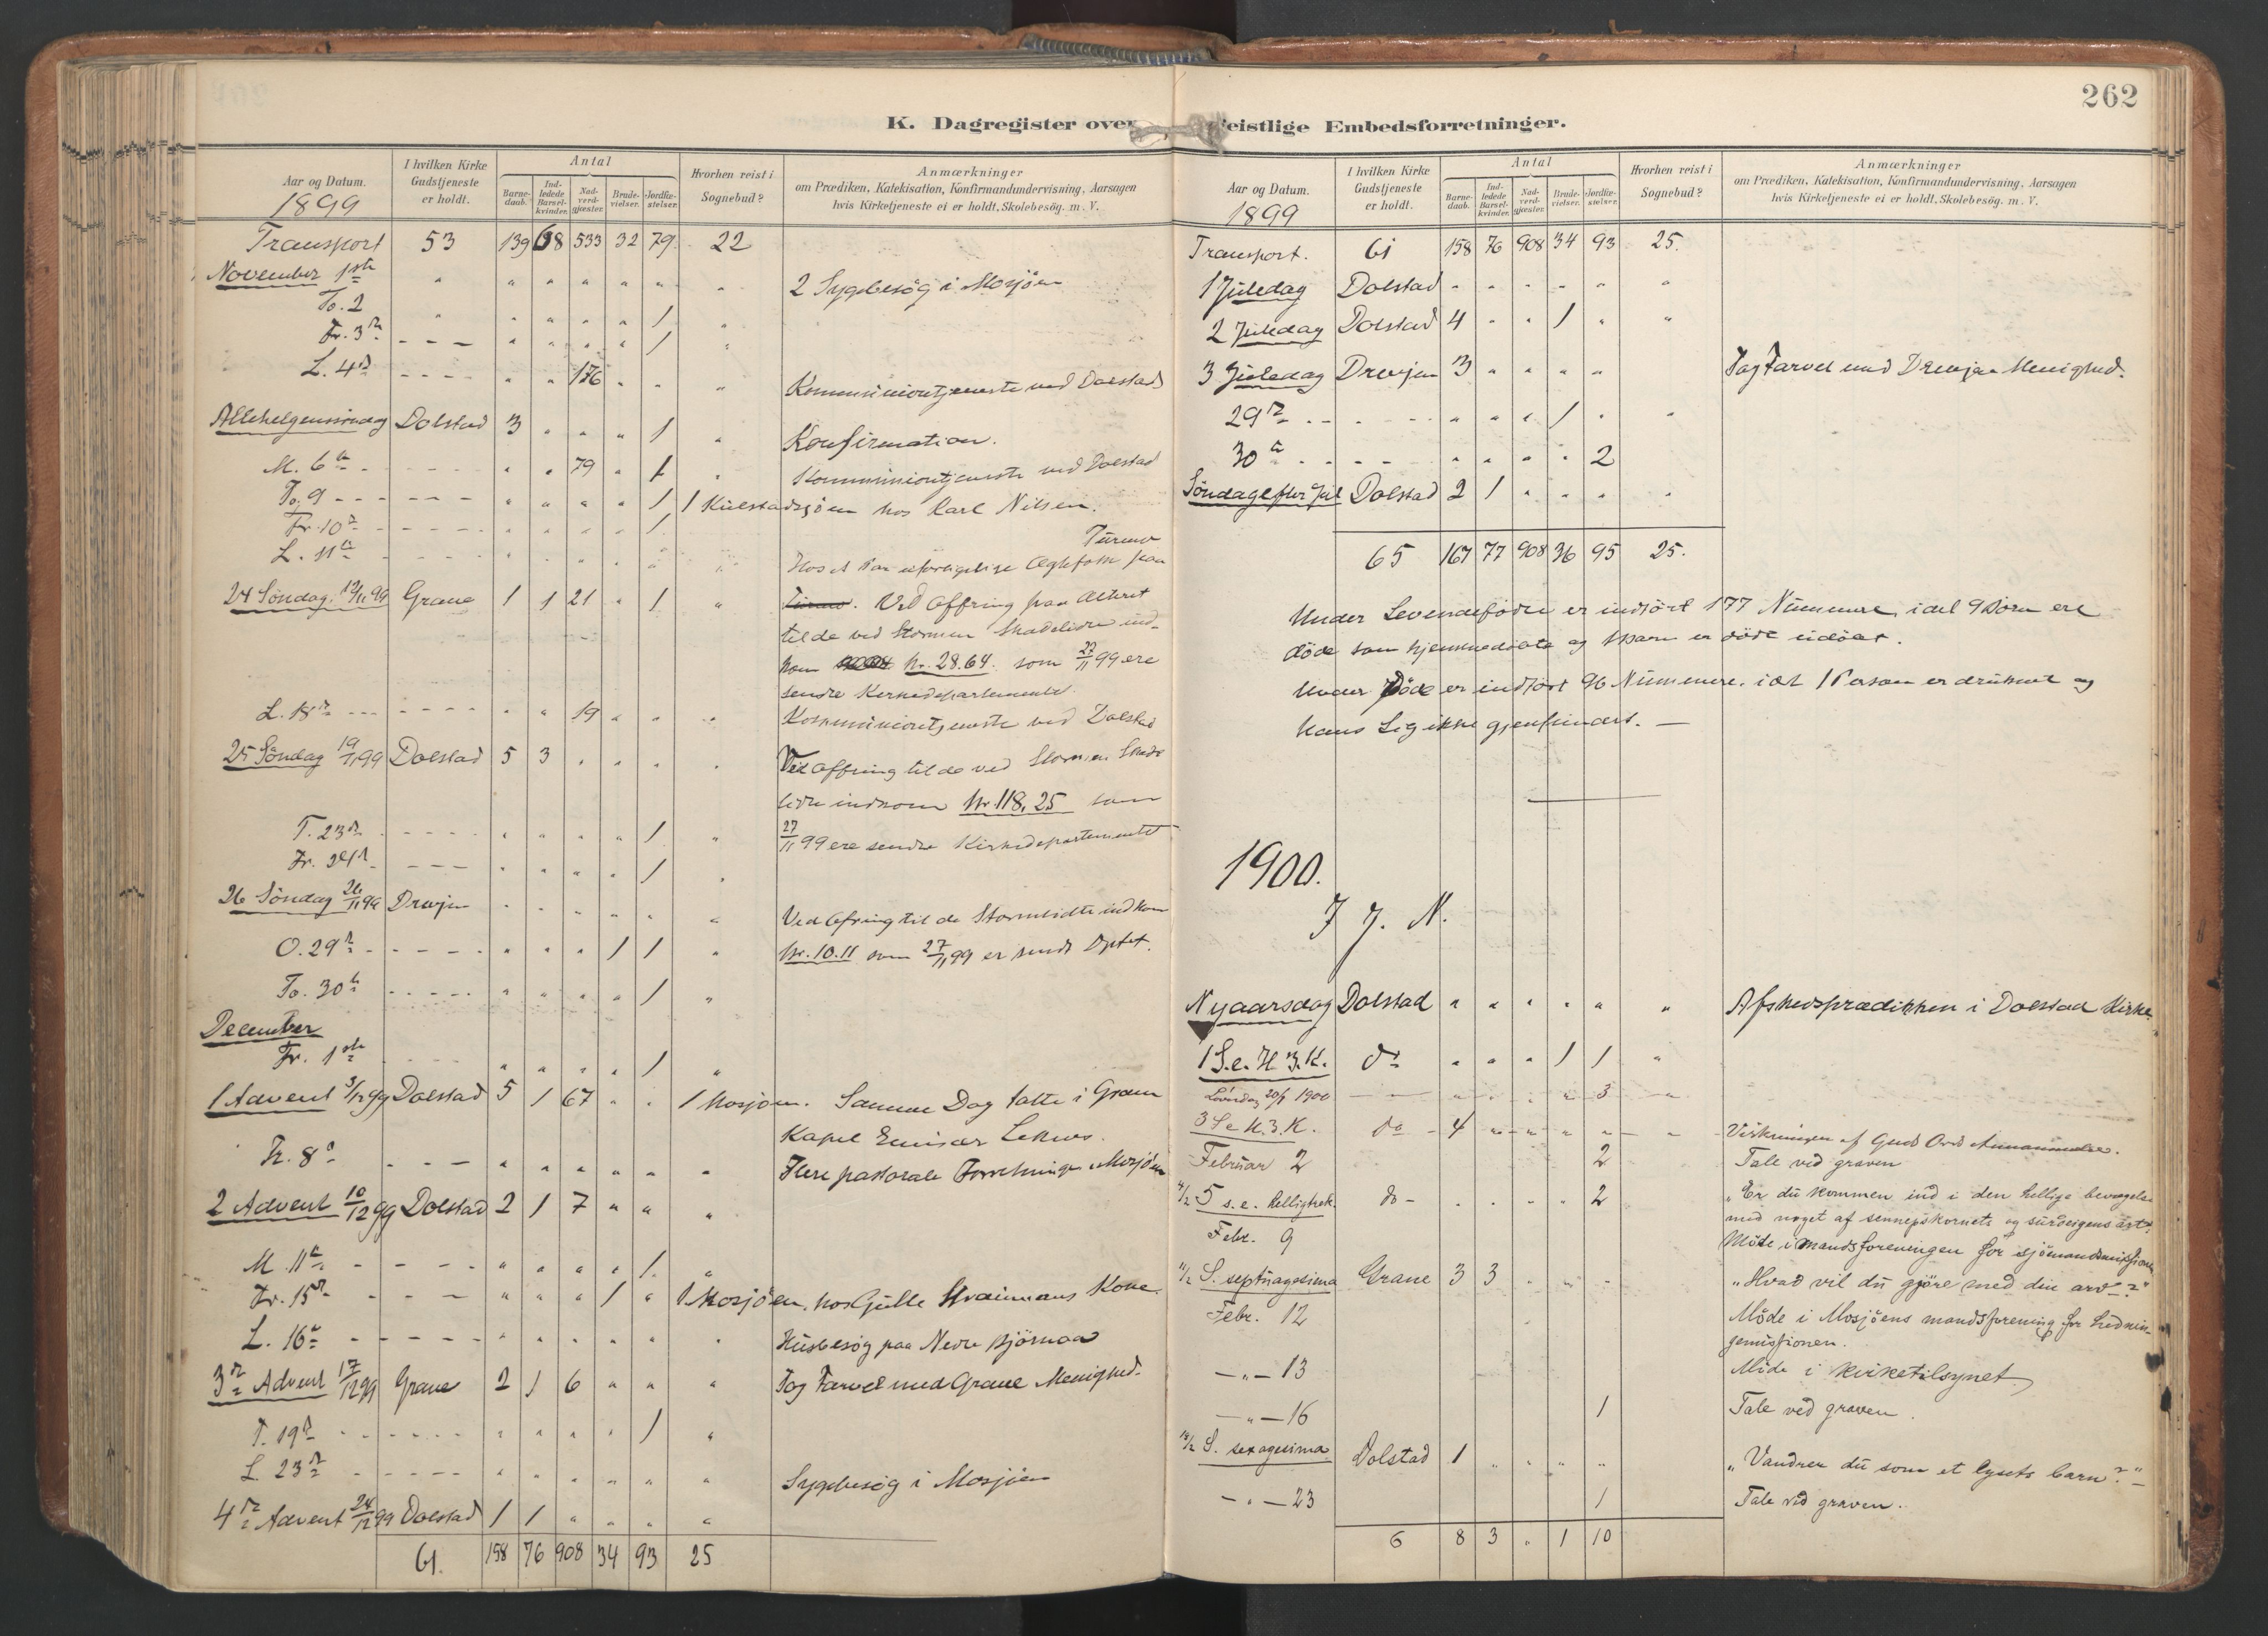 262
K. Dagregister over
eistlige Embedsforretninger.
Aar og Datum.
1899
I hvilken Kirke Gudstjeneste er holdt.
Antal
Barnedaab.
Indledede Barselkvinder.
Nadverdgjæster.
Brudevielser.
Jordfæstelser.
Hvorhen reist i Sognebud?
Anmærkninger
om Prædiken, Katekisation, Konfirmandundervisning, Aarsagen
hvis Kirketjeneste ei er holdt, Skolebesög. m. V.
Transport 53 139 68 533 32 79 22
November 1ste " " " " " " " 2 Sygebesög i Mosjöen
To. 2 " " " " " 1 "
Fr. 3die - - - " " " " 1 "
L. 4de - - - - " " 176 " " " Kommuniontjeneste ved Dolstad
Allehelgensöndag Dolstad 3 " " " 1 " Konfirmation.
M. 6te - - - - " " 79 " 1 " Kommuniontjeneste ved Dolstad
To. 9 - - - - - - " " " " 1 1 Kulstadsjöen hos Carl Nilsen.
Fr. 10de - - - - - " " " " 1
L. 11te - - - - - " " " " " " Hos et Par uforligelige Ægtefolk paa
Turmo
24 Söndag 12/11 99 Grane 1 1 21 " 1 " Turmo. Ved Offring paa Alteret
til de ved Stormen Skadelidte ind-
kom Kr. 28.64 som 22/11 99 ere
sendte Kirkedepartementet.
L. 18de - - - - - - - " " 19 " " " Kommuniontjeneste ved Dolstad
25 Söndag 19/11 99 Dolstad 5 3 " " " " Ved Offring til de ved Stormen Skade
lidte indkom Kr. 118,25 som
T. 23de - - - - " " " " 1 " 27/11 99 ere sendte Kirkedepartementet
Fr. 24de - - - " " " " 1 "
26 Söndag 26/11 99 Drevjen " " " " " " Ved Ofring til de Stormlidte indkom
O. 29de - - - - - " " " 1 1 " Kr. 10.11 som 27/11 99 er sendt Dptet.
To. 30te - - - - - " " " " 1 "
December
Fr. 1ste - - - " " " " 1 "
1 Advent 3/12 99 Dolstad 5 1 67 " " 1 Mosjöen. Samme Dag talte i Grane
Kapel Emisær
Fr. 8de - - - " " " " " " Flere pastorale Forretninger i Mosjöen
2 Advent 10/12 99 Dolstad 2 1 7 " " "
M. 11te - - - - - " " " " 1 "
Fr. 15de - - - " " " 1 " 1 Mosjöen, hos Gulle Kone.
L. 16de - - - - - " " " " " " Husbesög paa Nedre Bjørnaa
3die Advent 17/12 99 Grane 2 1 6 " " " Tog Farvel med Grane Menighed.
T. 19de - - - - - - " " " " 1 "
L. 23de - - - - - " " " " " " Sygebesög i Mosjöen
4de Advent 24/12 99 Dolstad 1 1 " " " "
61. 158 76 908 34 93 25
Aar og Datum.
1899
I hvilken Kirke Gudstjeneste er holdt.
Antal
Barnedaab.
Indledede Barselkvinder.
Nadverdgjæster.
Brudevielser.
Jordfæstelser.
Hvorhen reist i Sognebud?
Anmærkninger
om Prædiken, Katekisation, Konfirmandundervisning, Aarsagen
hvis Kirketjeneste ei er holdt, Skolebesög. m. V.
Transport. 61 158 76 908 34 93 25.
1 Juledag Dolstad " " " " " "
2 Juledag Dolstad 4 " " 1 " "
3 Juledag Drevjen 3 " " " " Tog Farvel med Drevjen Menighed.
29de - - - - - " " " 1 " "
30te - - - - " " " " 2
Söndag efter Jul Dolstad 2 1 " " " "
65 167 77 908 36 95 25.
Under Levendefödte er indfört 177 Nummere, idet 9 Börn ere
döde som hjemmedöbte og 1 Barn er död udöbt.
Under Döde er indfört 96 Nummere, idet 1 Person er druknet og
hans Lig ikke gjenfundet. —
1900.
I J. N.
Nyaarsdag Dolstad " " " " " " Afskedsprædikken i Dolstad Kirke.
1 S. e. H 3. K. do " " " 1 1 "
Löverdag 20/1 1900 — — " " " " 3 "
3 S e H. 3. K. do - 4 " " " " " Virkningen af Guds Ords Annammelse.
Februar 2 2 Tale ved graven
4/2 5 s. e. helligtrek. do - " " " " 2 "Er du kommen ind i den hellige bevægelse
med noget af sennepskornets og surdeigens art?"
Febr. 9 Möde i mandsforeningen for sjömandsmissionen
11/2 S. septuagesima Grane 3 3 " " " "Hvad vil du gjöre med din arv?"
Febr. 12 Möde i Mosjöens mandsforening for hednin-
gemissionen.
— " — 13 Möde i kirketilsynet
— " — 16 1 Tale ved graven.
18/2 S. sexagesima Dolstad 1 " " " " "Vandrer du som et lysets barn?"
— " — 23 1 Tale ved graven.
6 8 3 " 1 10